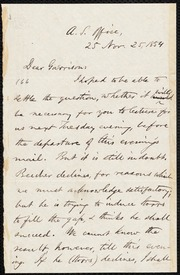 A. S. Office,
25 Nov. 25, 1854
Dear Garrison:
166
I hoped to be able to
settle the question, whether it will
be necessary for you to lecture for
us next Tuesday evening, before
the departure of this evening's
mail. But it is still in doubt.
Beecher declines, for reasons which
we must acknowledge satisfactory,
but he is trying to induce
to fill the gap, & thinks he shall
succeed. We cannot know the
result, however, till this eve-
ning. If he declines, I shall